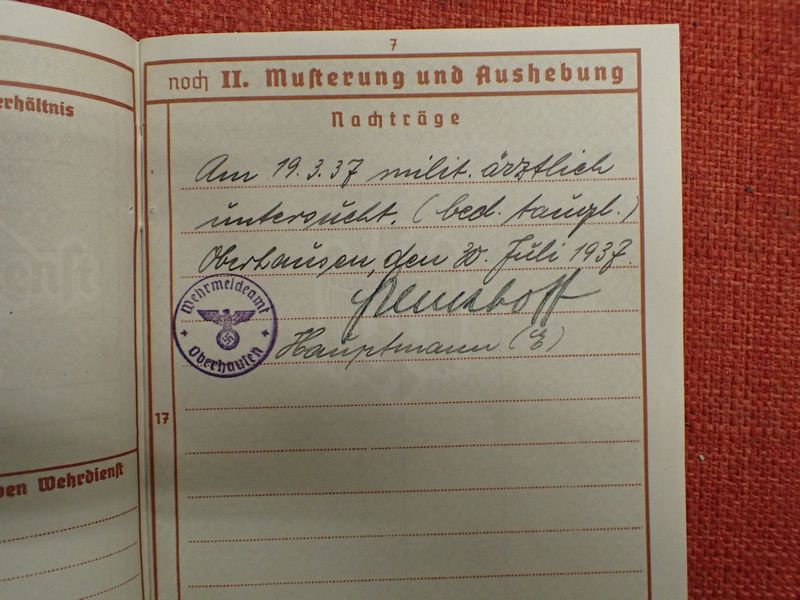 7
noch II. Musterung und Aushebung
Nachträge
erhältnis
Am 19.3.37 milit. ärztlich
untersucht. (bed. taugl.)
Oberhausen, den 30. Juli 1937.
Wehrmeldeamt
Oberhausen
Hauptmann (E)
17
ven Wehrdienst